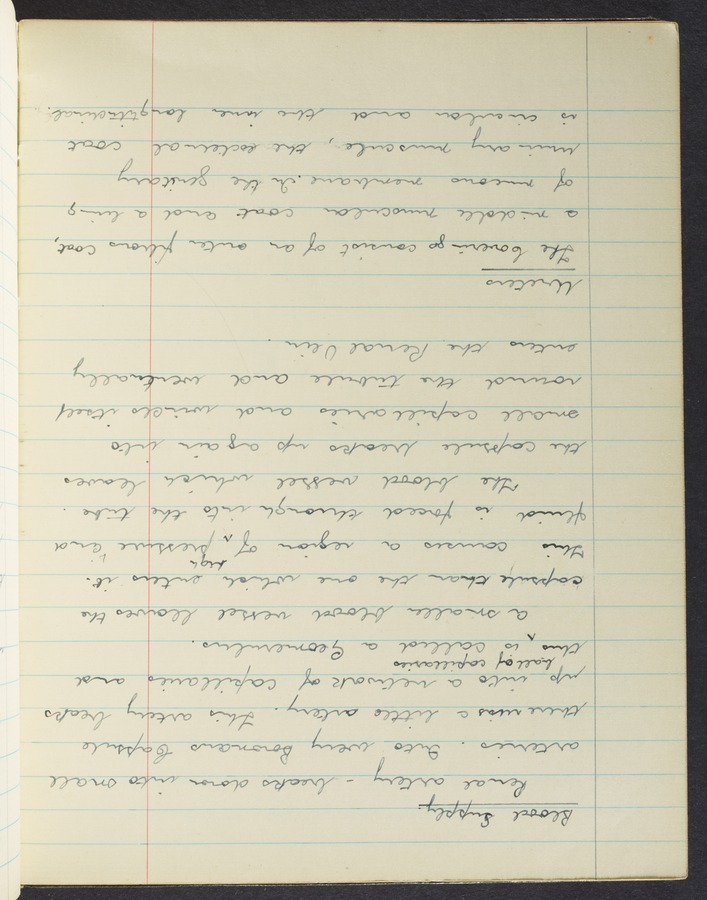 Blood Supply.
Renal artery - breaks down into small
arteries. Into every Bowmans Capsule
there runs a little artery. This artery breaks
up into a network of capillaries and
this ball of capillaries is called a Glomerulus.
a smaller blood vessel leaves the
capsule than the one which enters it.
This causes a region of high pressure and
fluid is forced through into the tube.
The blood vessel which leaves
the capsule breaks up again into
small capillaries and winds itself
round the tubule and eventually
enters the Renal Vein.
Ureters
The coverings consist of an outer fibrous coat,
a middle muscular coat and a lining
of mucous membrane. In the genitary
urinary muscule, the external coat
is circular and the iner longitudinal.